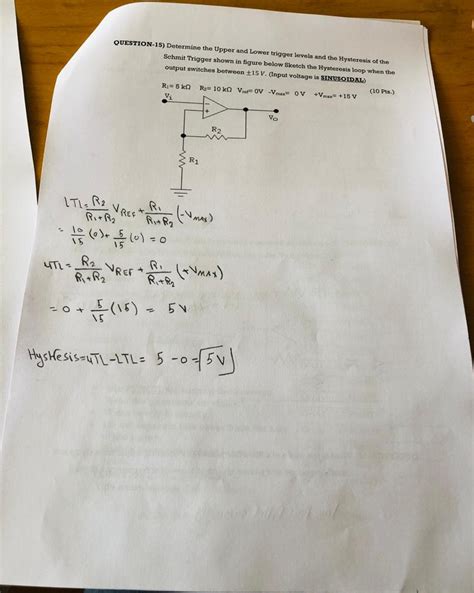 QUESTION-15) Determine the Upper and Lower trigger levels and the Hysteresis of the
Schmit Trigger shown in figure below Sketch the Hysteresis loop when the
output switches between ±15 V. (Input voltage is SINUSOIDAL)
(10 Pts.)
R₁= 5 kΩ R₂= 10 kΩ Vref= 0V -Vmax= 0 V +Vmax= +15 V
V₁
−
+
V₀
R₂
R₁
LTL = R₂/(R₁+R₂) VREF + R₁/(R₁+R₂) (-VMAX)
= 10/15 (0) + 5/15 (0) = 0
UTL = R₂/(R₁+R₂) VREF + R₁/(R₁+R₂) (+VMAX)
= 0 + 5/15 (15) = 5V
= UTL - LTL = 5 - 0 = 5V